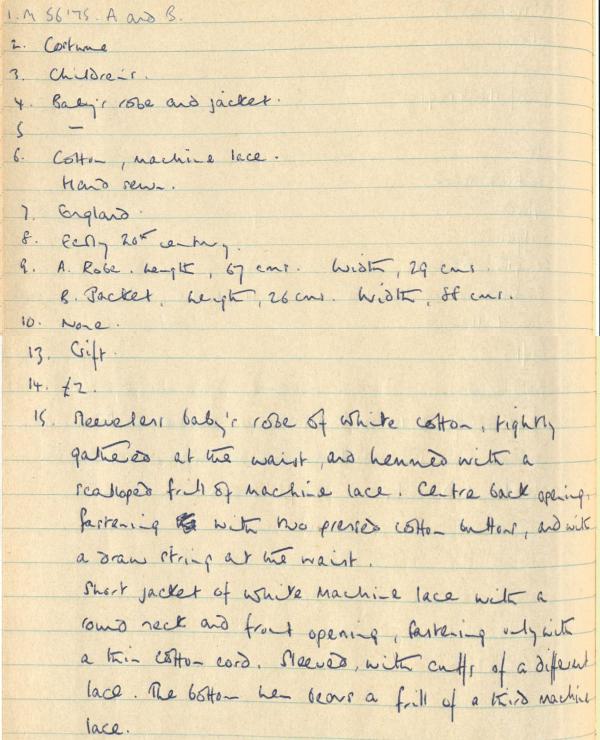 1. M 56'75. A and B.
2. Costume
3. Children's.
4. Baby's robe and jacket.
5 —
6. Cotton, machine lace.
Hand sewn.
7. England.
8. Early 20th century.
9. A. Robe. Length, 67 cms. Width, 29 cms.
B. Jacket, Length, 26 cms. Width, 88 cms.
10. None.
13. Gift.
14. £2.
15. Sleeveless baby's robe of white cotton, tightly
gathered at the waist, and hemmed with a
scalloped frill of machine lace. Centre back opening,
fastening with two pressed cotton buttons, and with
a draw string at the waist.
Short jacket of white machine lace with a
round neck and front opening, fastening only with
a thin cotton cord. Sleeved, with cuffs of a different
lace. The bottom hem bears a frill of a third machine
lace.